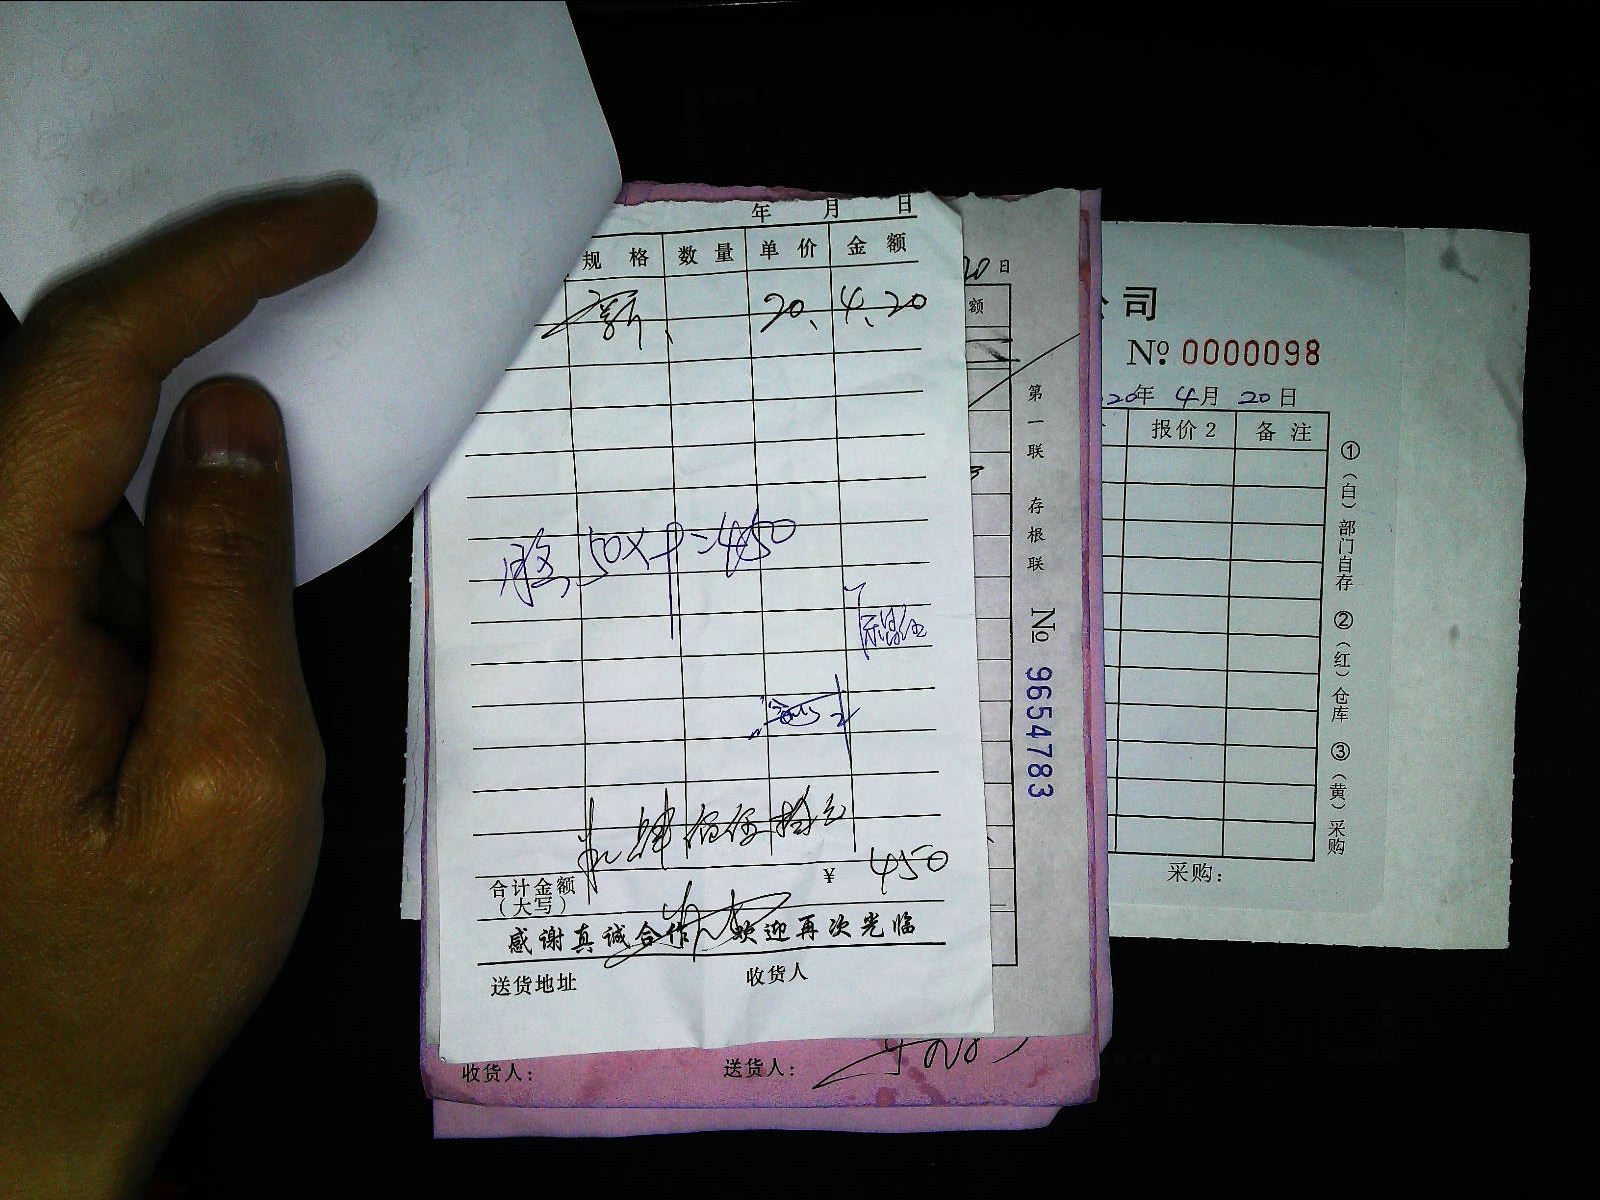 年 月 日
规 格 数 量 单 价 金 额
20、4、20
50X9=450
肆佰伍拾元
合计金额
（大写）
¥ 450
感谢真诚合作 欢迎再次光临
送货地址 收货人
收货人： 送货人：
20日
额
第一联 存根联 № 9654783
公司
№ 0000098
20年 4月 20日
报价2 备 注
①（白）部门自存 ②（红）仓库 ③（黄）采购
采购：